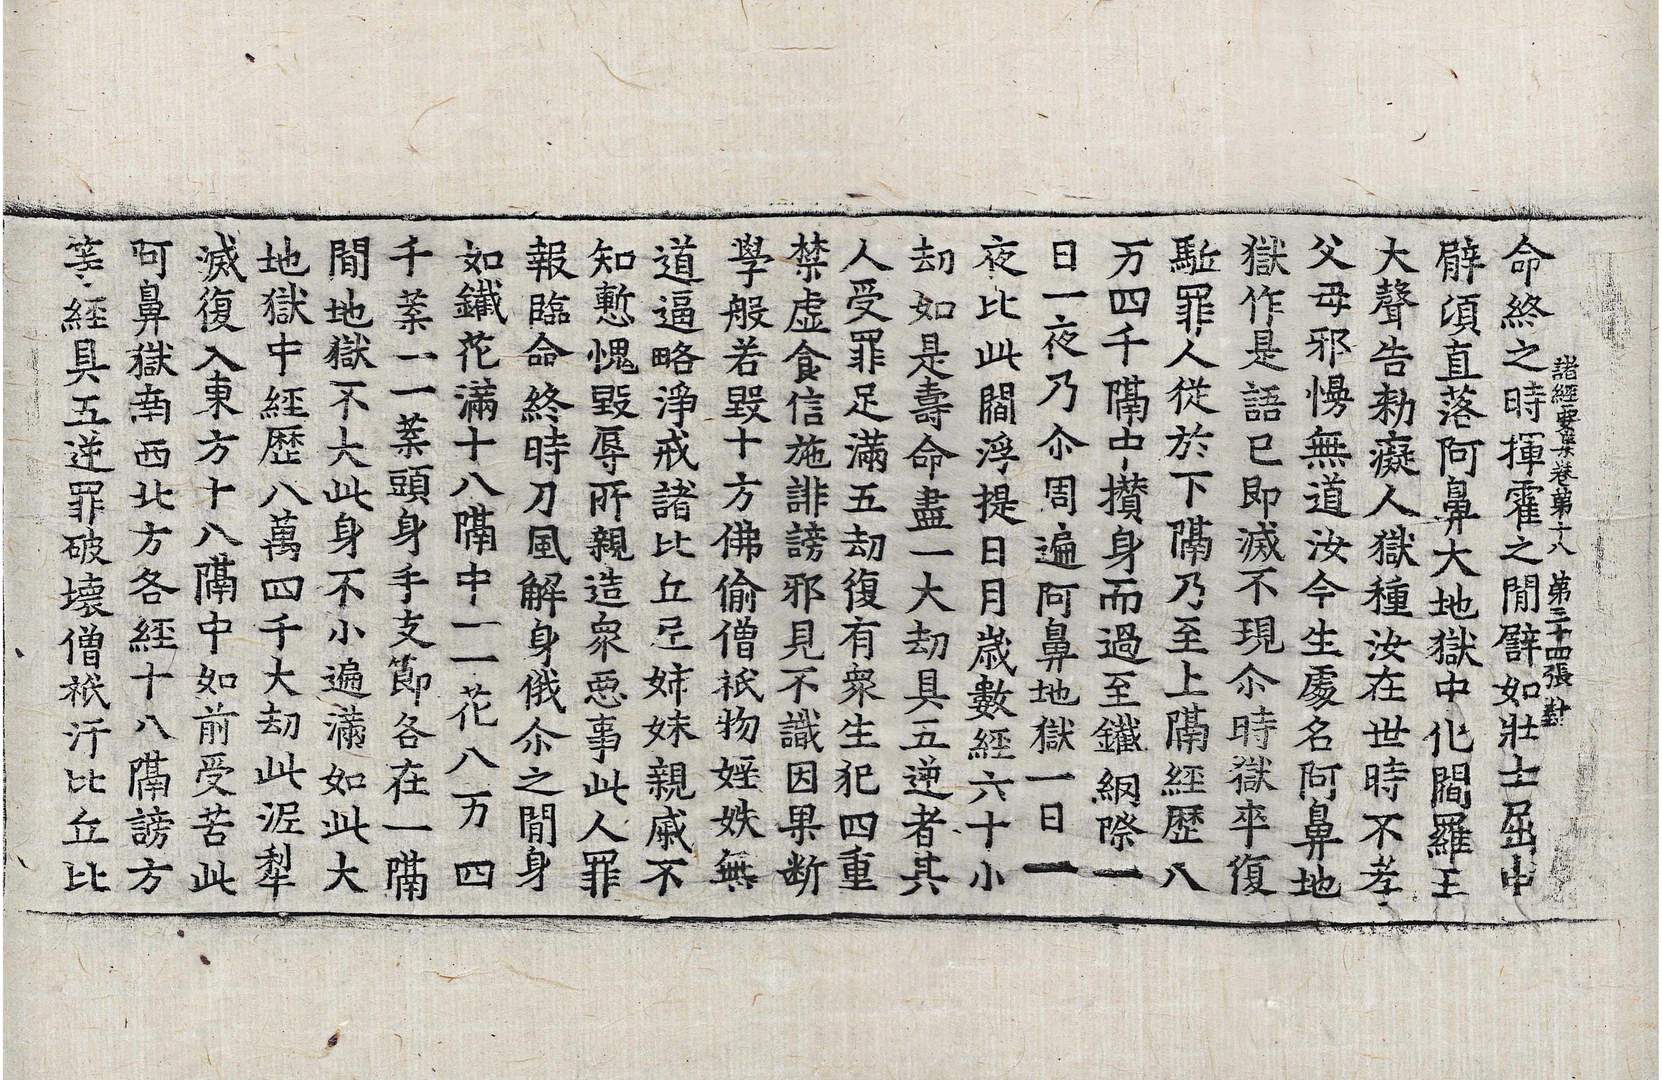 諸經要集卷第十八 第三十四張 對
命終之時揮霍之間譬如壯士屈申
臂須直落阿鼻大地獄中化閻羅王
大聲告勑癡人獄種汝在世時不孝
父母邪慢無道汝今生處名阿鼻地
獄作是語已即滅不現尒時獄卒復
駈罪人從於下隔乃至上隔經歷八
万四千隔中攅身而過至鐵網際一
日一夜乃尒周遍阿鼻地獄一日一
夜比此閻浮提日月歲數經六十小
劫如是壽命盡一大劫具五逆者其
人受罪足滿五劫復有衆生犯四重
禁虛食信施誹謗邪見不識因果断
學般若毀十方佛偷僧祇物婬妷無
道逼略淨戒諸比丘尼姉妹親戚不
知慙愧毀辱所親造衆惡事此人罪
報臨命終時刀風解身俄尒之間身
如鐵花滿十八隔中一一花八万四
千葉一一葉頭身手支節各在一隔
間地獄不大此身不小遍滿如此大
地獄中經歷八萬四千大劫此泥犁
滅復入東方十八隔中如前受苦此
阿鼻獄南西北方各經十八隔謗方
等經具五逆罪破壞僧祇汙比丘比